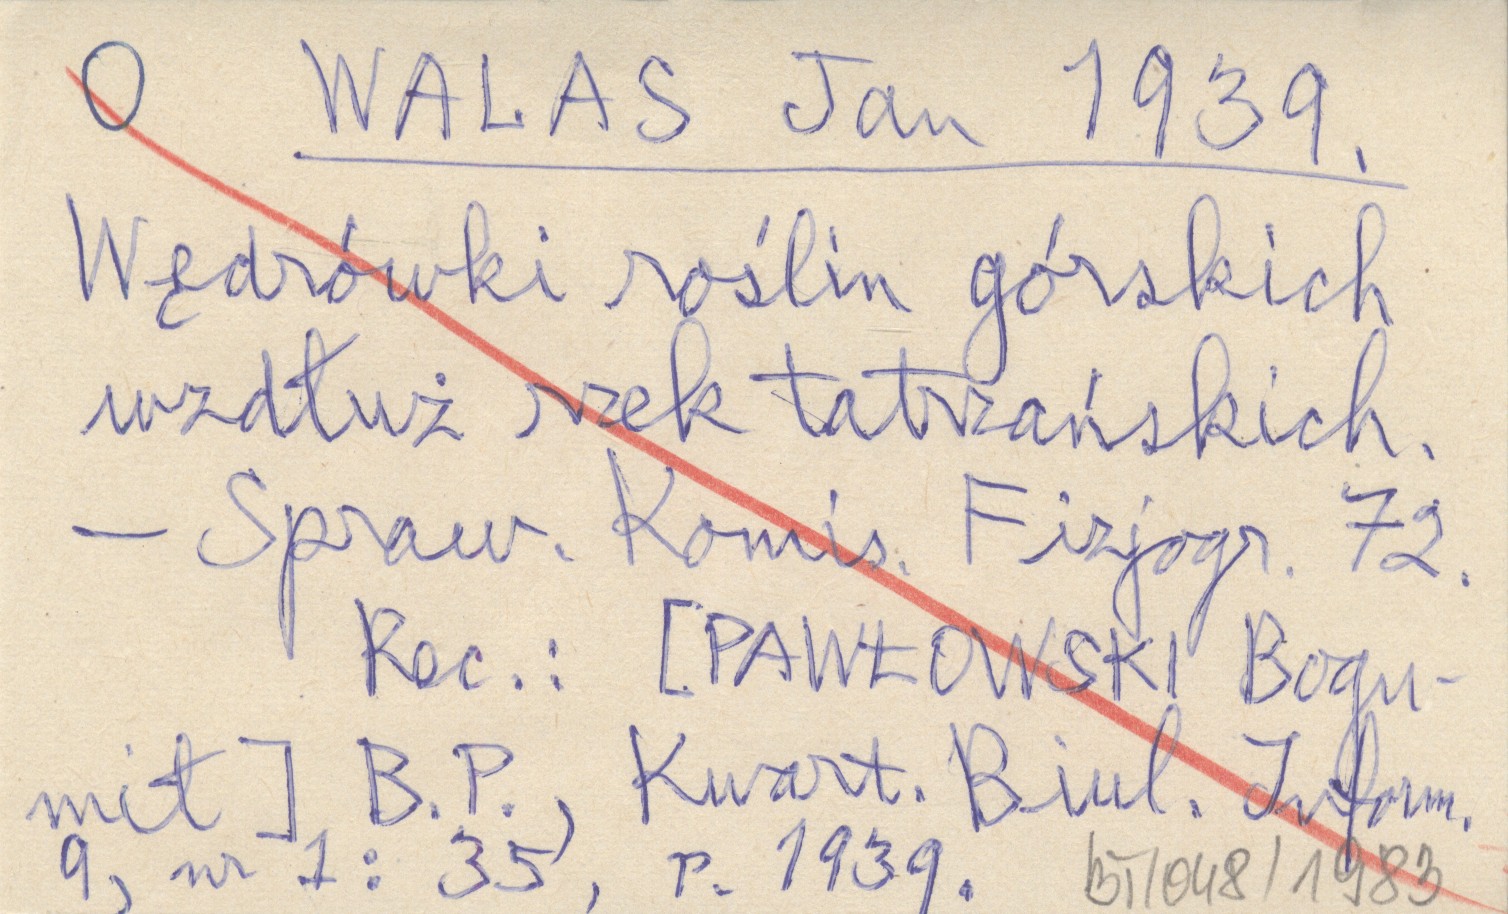 O WALAS Jan 1939.
Wędrówki roślin górskich
wzdłuż rzek tatrzańskich.
— Spraw. Komis. Fizjogr. 72.
Rec.: [PAWŁOWSKI Bogu-
mił] B.P., Kwart. Biul. Inform.
9, nr 1: 35, r. 1939.
BT/048/1983